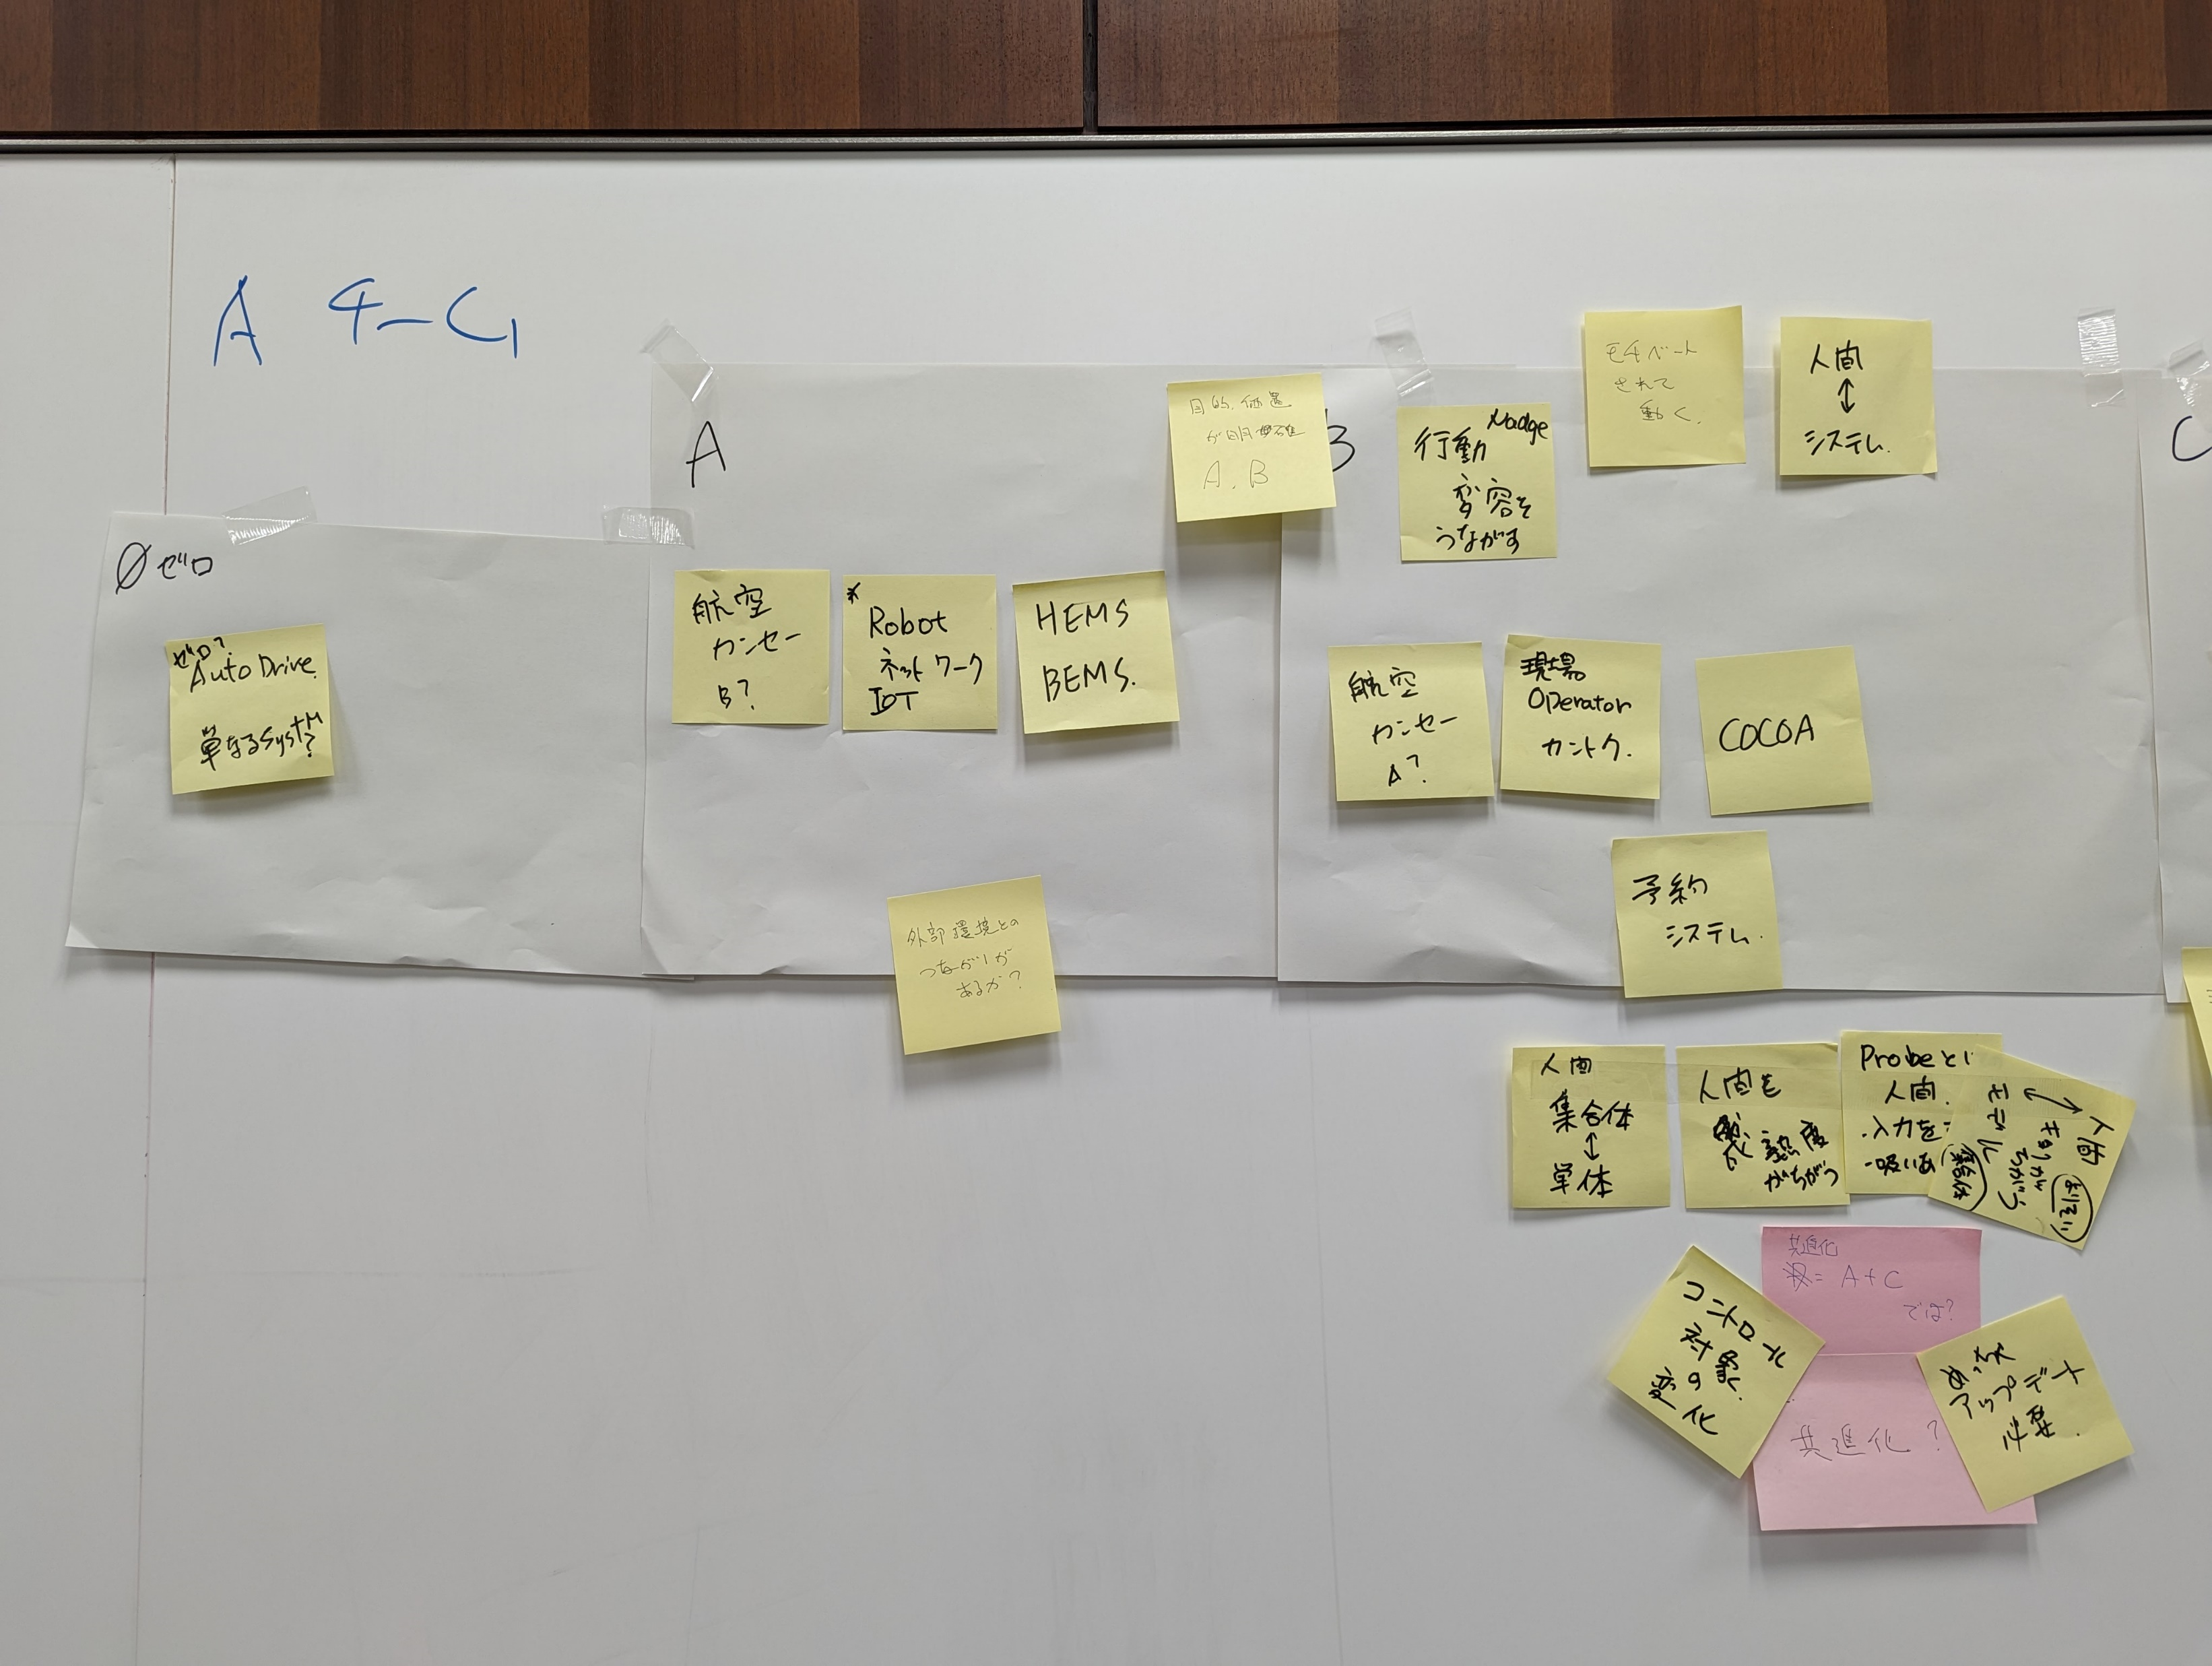 A チーム
0ゼロ
ゼロ?
Auto Drive
単なるSystM?
A
航空
カンセー
B?
*
Robot
ネットワーク
IOT
HEMS
BEMS.
目的、価値
が明確
A、B
外部環境との
つながりが
あるか?
B
Nadge
行動
変容を
うながす
モチベート
されて
動く。
人間
↕
システム.
航空
カンセー
A?
現場
Operator
カントク.
COCOA
予約
システム.
人間
集合体
↕
単体
人間を
熟度
がちがう
Probeとし
人間.
・入力を
・吸いあ
人間
↔
モデル
ちがう
集合体
共進化
= A+C
では?
共進化?
コントロール
対象
の
変化
めっちゃ
アップデート
必要.
C